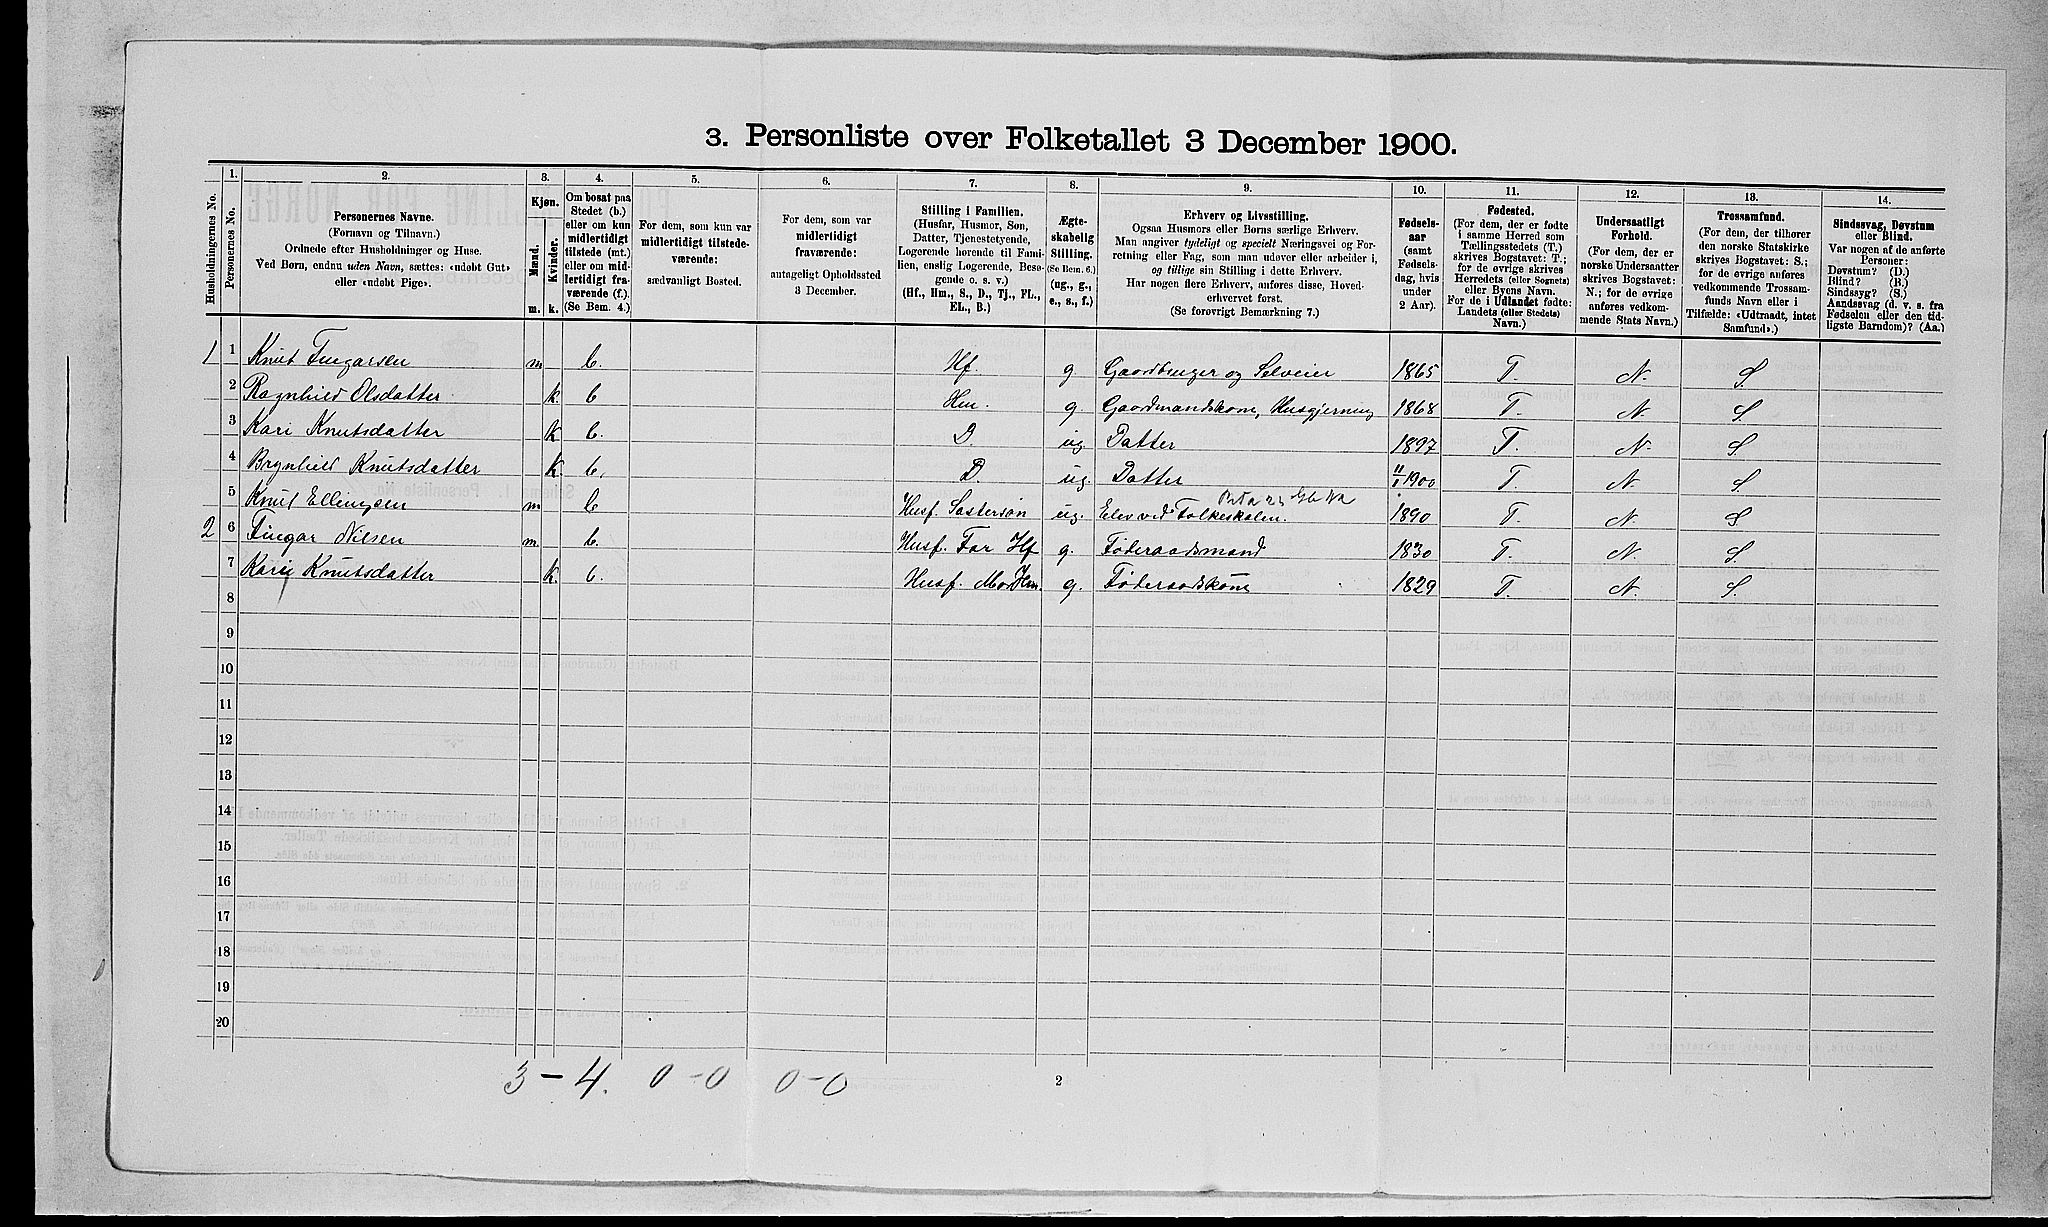 3. Personliste over Folketallet 3 December 1900.
Husholdningernes No.
1. Personernes No.
2. Personernes Navne.
(Fornavn og Tilnavn.)
Ordnede efter Husholdninger og Huse.
Ved Børn, endnu uden Navn, sættes: «udøbt Gut»
eller «udøbt Pige».
3. Kjøn.
Mænd. m.
Kvinder. k.
4. Om bosat paa
Stedet (b.)
eller om kun
midlertidigt
tilstede (mt.)
eller om mid-
lertidigt fra-
værende (f.).
(Se Bem. 4.)
5. For dem, som kun var
midlertidigt tilstede-
værende:
sædvanligt Bosted.
6. For dem, som var
midlertidigt
fraværende:
antageligt Opholdssted
3 December.
7. Stilling i Familien.
(Husfar, Husmor, Søn,
Datter, Tjenestetyende,
Logerende hørende til Fami-
lien, enslig Logerende, Besø-
gende o. s. v.)
(Hf., Hm., S., D., Tj., FL.,
EL., B.)
8. Ægte-
skabelig
Stilling.
(Se Bem. 6.)
(ug., g.,
e., s., f.)
9. Erhverv og Livsstilling.
Ogsaa Husmors eller Børns særlige Erhverv.
Man angiver tydeligt og specielt Næringsvei og For-
retning eller Fag, som man udøver eller arbeider i,
og tillige sin Stilling i dette Erhverv.
Har nogen flere Erhverv, anføres disse, Hoved-
erhvervet først.
(Se forøvrigt Bemærkning 7.)
10. Fødsels-
aar
(samt
Fødsels-
dag, hvis
under
2 Aar).
11. Fødested.
(For dem, der er fødte
i samme Herred som
Tællingsstedets (T.)
skrives Bogstavet: T.;
for de øvrige skrives
Herredets (eller Sognets)
eller Byens Navn.
For de i Udlandet fødte:
Landets (eller Stedets)
Navn.)
12. Undersaatligt
Forhold.
(For dem, der er
norske Undersaatter
skrives Bogstavet:
N.; for de øvrige
anføres vedkom-
mende Stats Navn.)
13. Trossamfund.
(For dem, der tilhører
den norske Statskirke
skrives Bogstavet: S.;
for de øvrige anføres
vedkommende Trossam-
funds Navn eller i
Tilfælde: «Udtraadt, intet
Samfund».)
14. Sindssvag, Døvstum
eller Blind.
Var nogen af de anførte
Personer:
Døvstum? (D.)
Blind? (B.)
Sindssyg? (S.)
Aandssvag (d. v. s. fra
Fødselen eller den tid-
ligste Barndom)? (Aa.)
1 1 Knut Fingarsen m b. Hf. g. Gaardbruger og Selveier 1865 T. N. S.
2 Ragnhild Olsdatter k. b Hm. g. Gaardmandskone, Husgjerning 1868 T. N. S.
3 Kari Knutsdatter k b. D. ug. Datter 1897 T. N. S.
4 Brynhild Knutsdatter k. b. D. ug. Datter 1900 T. N. S.
5 Knut Ellingsen m b Husf. Søsterson ug. Elev ved Folkeskolen. 1890 T. N. S
2 6 Fingar Nilsen m. b. Husf. Far Hf g. Føderaadsmand 1830 T. N. S.
7 Kari Knutsdatter k. b. Husf. Mor Hm. g. Føderaadskone 1829 T. N. S.
8
9
10
11
12
13
14
15
16
17
18
19
20
3 – 4. 0 – 0 0 – 0
2